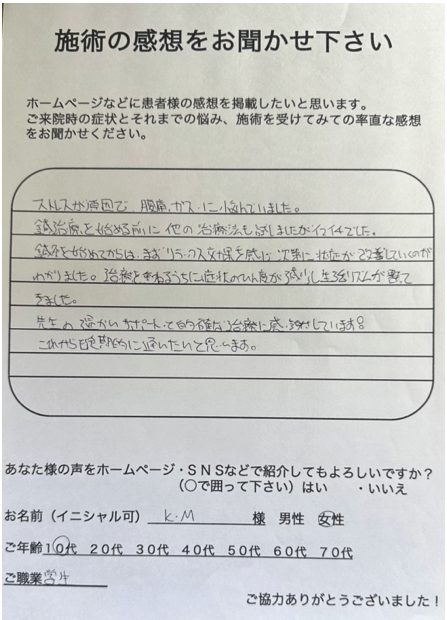 施術の感想をお聞かせ下さい
ホームページなどに患者様の感想を掲載したいと思います。
ご来院時の症状とそれまでの悩み、施術を受けてみての率直な感想
をお聞かせください。
ストレスが原因で、腹痛、ガスに悩んでいました。
鍼治療を始める前に他の治療法も試しましたがイマイチでした。
鍼を始めてからは、まずリラックス効果を感じ、次第に症状が改善していくのが
わかりました。治療を重ねるうちに症状のひん度が減り、生活リズムが整って
きました。
先生の温かいサポートと的確な治療に感謝しています。
これからも定期的に通いたいと思います。
あなた様の声をホームページ・SNSなどで紹介してもよろしいですか？
（○で囲って下さい）はい ・いいえ
お名前（イニシャル可） K.M 様 男性 女性
ご年齢 10代 20代 30代 40代 50代 60代 70代
ご職業 学生
ご協力ありがとうございました！